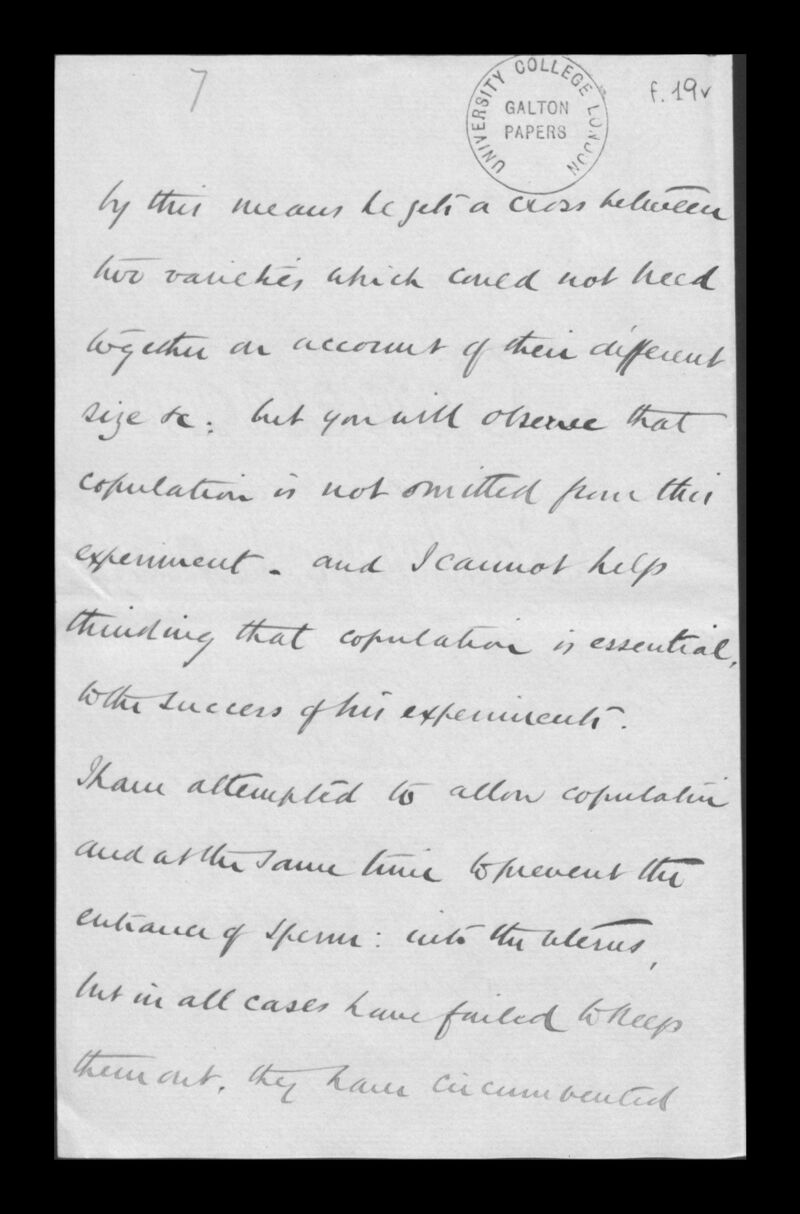 7
UNIVERSITY COLLEGE LONDON
GALTON
PAPERS
f. 19v
by this means he gets a cross between
two varieties which could not breed
together on account of their different
size &c. but you will observe that
copulation is not omitted from this
experiment - and I cannot help
thinking that copulation is essential,
to the success of his experiments.
I have attempted to allow copulation
and at the same time to prevent the
entrance of sperm: into the uterus,
but in all cases have failed to keep
them out. they have circumvented